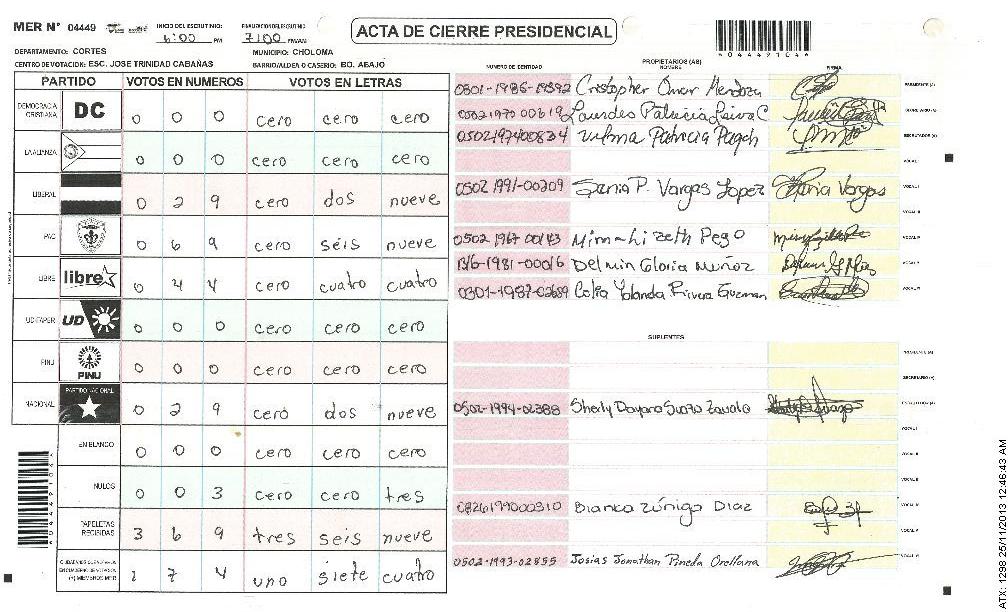 MER N° 04449
INICIO DEL ESCRUTINIO: 6:00 PM
FINALIZACION DEL ESCRUTINIO: 7:00 PM/AM
ACTA DE CIERRE PRESIDENCIAL
044491044
DEPARTAMENTO: CORTES
MUNICIPIO: CHOLOMA
CENTRO DE VOTACION: ESC. JOSE TRINIDAD CABAÑAS
BARRIO/ALDEA O CASERIO: BO. ABAJO
PARTIDO VOTOS EN NUMEROS VOTOS EN LETRAS
DEMOCRACIA CRISTIANA DC 0 0 0 cero cero cero
LA ALIANZA 0 0 0 cero cero cero
LIBERAL 0 29 cero dos nueve
PAC 0 6 9 cero seis nueve
LIBRE libre 0 4 4 cero cuatro cuatro
UD-FAPER UD 0 0 0 cero cero cero
PINU PINU 0 0 0 cero cero cero
NACIONAL PARTIDO NACIONAL 0 2 9 cero dos nueve
EN BLANCO 0 0 0 cero cero cero
NULOS 0 0 3 cero cero tres
PAPELETAS RECIBIDAS 3 6 9 tres seis nueve
(+) MIEMBROS MER 1 7 4 uno siete cuatro
PROPIETARIOS (AS)
NUMERO DE IDENTIDAD NOMBRE FIRMA
0801-1986-19892 Cristopher Omar Mendoza PRESIDENTE (A)
0502 1970 00619 Lourdes Patricia Leiva C SECRETARIO (A)
0502197400834 Vilma Patricia ESCRUTADOR (A)
VOCAL I
0502 1991-00209 Sania P. Vargas Lopez Vargas VOCAL II
VOCAL III
0502 1967 00143 VOCAL IV
1316-1981-00016 Delmin Gloria Muñoz VOCAL V
0301-1987-02659 Celia Yolanda Rivera Guzman VOCAL VI
SUPLENTES
PRESIDENTE (A)
SECRETARIO (A)
0502-1994-02388 Sherly Dayana Suazo Zavala ESCRUTADOR (A)
VOCAL I
VOCAL II
VOCAL III
0826199000310 Bianca Zúniga Diaz VOCAL IV
VOCAL V
0502-1993-02855 Josias Jonathan Pineda Orellana VOCAL VI
ATX: 1298 25/11/2013 12:46:43 AM